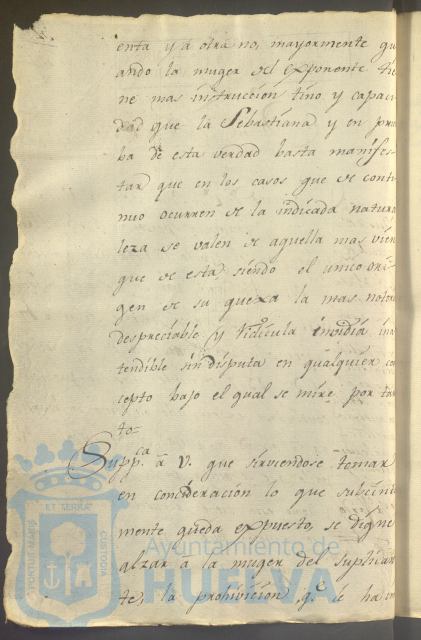 enta y á otra no, mayormente qu
ando la muger del exponente tie
ne mas instruccion tino y capaci
dad que la Sebastiana y en prue
ba de esta verdad basta manifes
tar que en los casos que de conti
nuo ocurren de la indicada natura
leza se valen de aquella mas vien
que de esta siendo el unico ori
gen de su quexa la mas notori
despreciable y ridicula invidia in
tendible sin disputa en qualquier co
cepto bajo el qual se mire por tan
to=
Supp.ca á V. que sirviendose tomar
en concideración lo que subcint
mente queda expuesto, se digne
alzar á la muger del suplican
te, la prohivicion q.e le ha im
ET TERRÆ
PORTUS MARIS
CUSTODIA
Ayuntamiento de
HUELVA